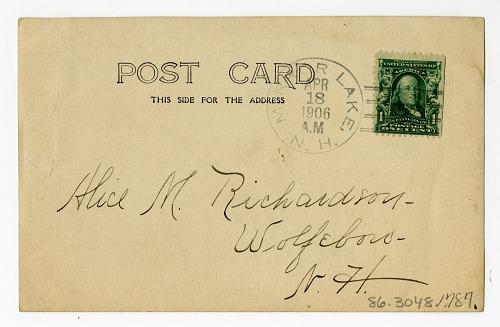 POST CARD
THIS SIDE FOR THE ADDRESS
MIRROR LAKE, N.H.
APR
18
1906
A.M
UNITED STATES OF
AMERICA
1 1
POSTAGE
ONE CENT
Alice M. Richardson-
Wolfeboro-
N. H.
86.3048.1787.